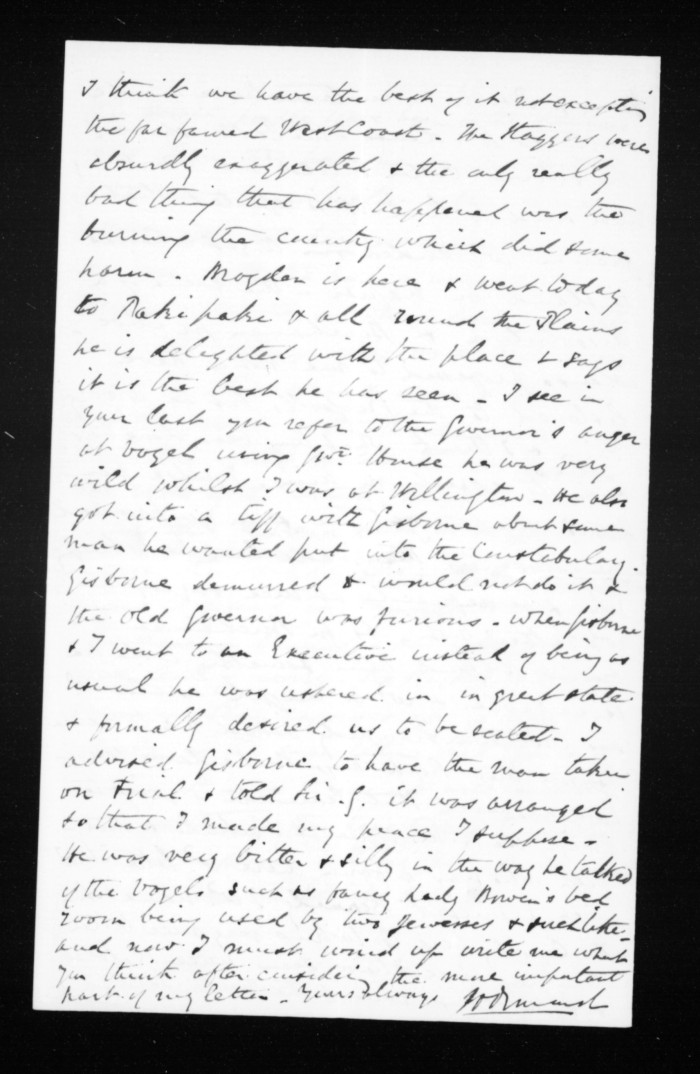 I think we have the best of it not excepting
the far famed West Coast - The Staggers were
absurdly exaggerated & the only really
bad thing that has happened was the
burning the country which did some
harm - Brogden is here & went today
to Pakipaki & all round the Plains
he is delighted with the place & says
it is the best he has seen - I see in
your last you refer to the Governor's anger
at Vogel using Govt. House he was very
wild whilst I was at Wellington - He also
got into a tiff with Gisborne about some
man he wanted put into the Constabulary.
Gisborne demurred & would not do it &
the old Governor was furious - when Gisborne
& I went to an Executive instead of being as
usual he was ushered in in great state
& formally desired us to be seated - I
advised Gisborne to have the man taken
on trial & told Sir G. it was arranged
so that I made my peace I suppose -
He was very bitter & silly in the way he talked
of the Vogels such as fancy Lady Bowen's bed
room being used by two Jewesses & such like -
and now I must wind up write me what
you think after considering the more important
part of my letter - Yours always JD Ormond